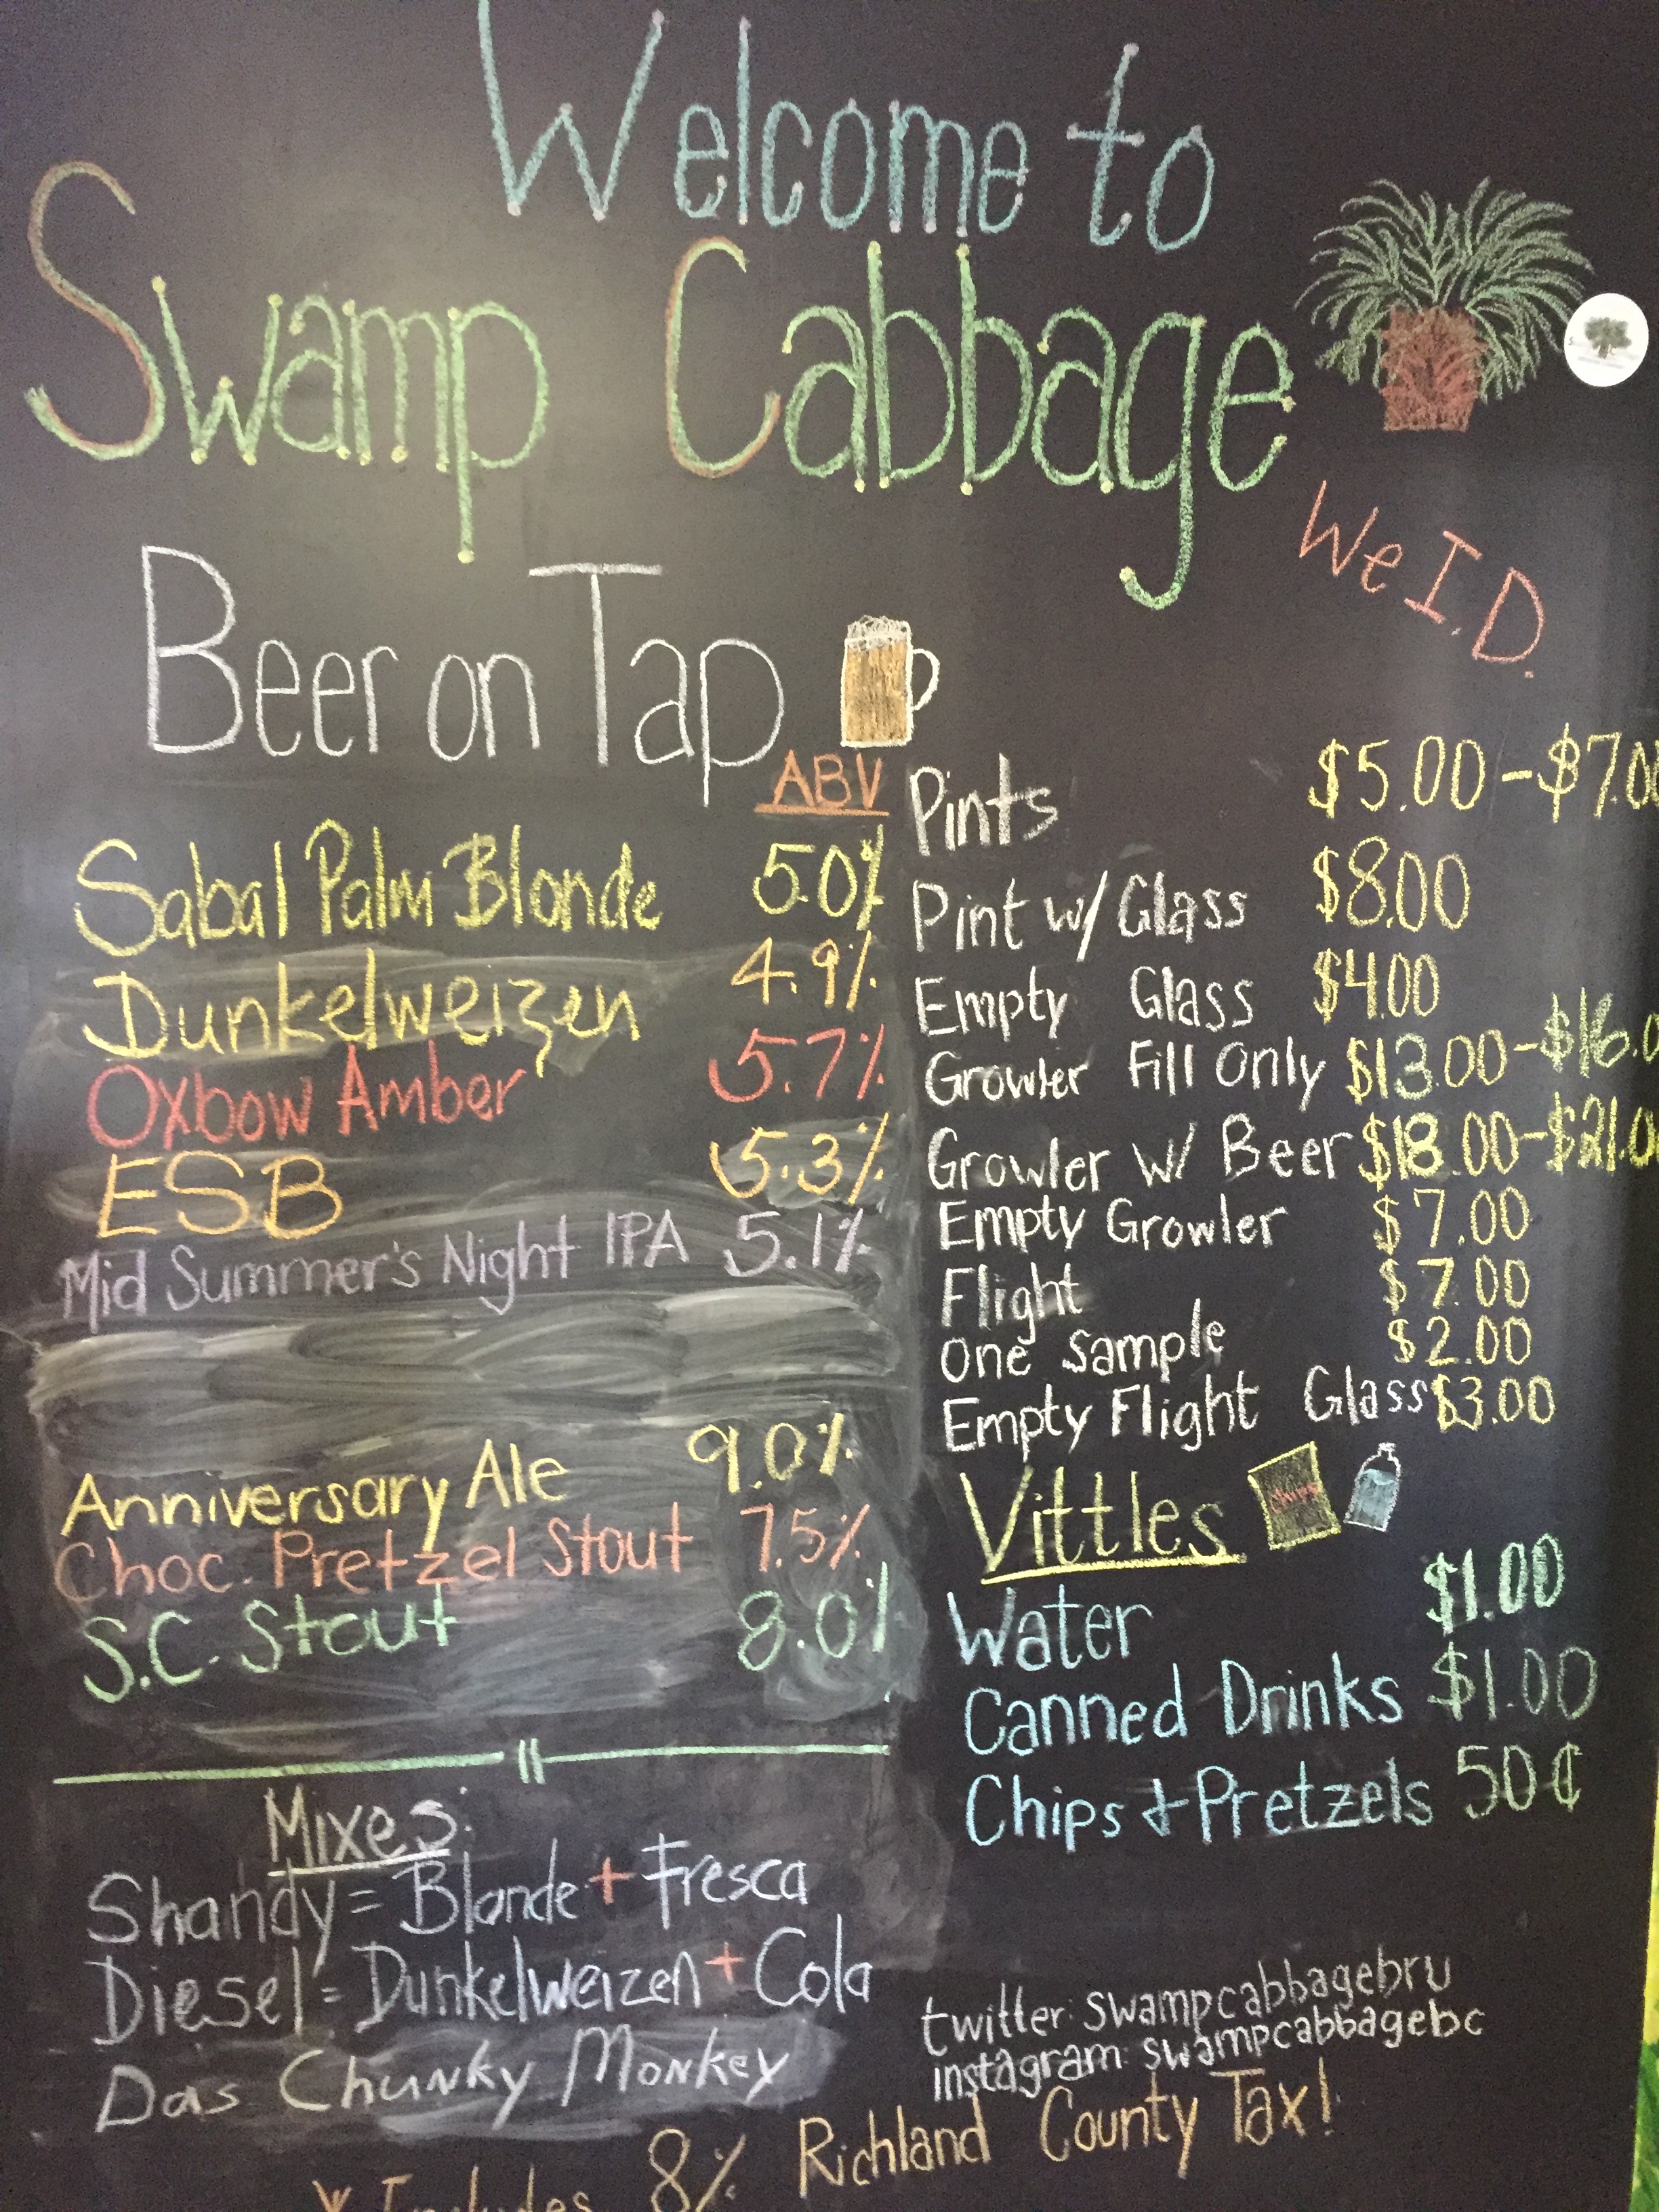 Welcome to
Swamp Cabbage
We I.D.
Beer on Tap
ABV
Sabal Palm Blonde 5.0%
Dunkelweizen 4.9%
Oxbow Amber 5.7%
ESB 5.3%
Mid Summer's Night IPA 5.1%
Anniversary Ale 9.0%
Choc. Pretzel Stout 7.5%
S.C. Stout 8.0%
Mixes:
Shandy = Blonde + Fresca
Diesel = Dunkelweizen + Cola
Das Chunky Monkey
Pints $5.00-$7.00
Pint w/ Glass $8.00
Empty Glass $4.00
Growler Fill Only $13.00-$16.0
Growler w/ Beer $18.00-$21.0
Empty Growler $7.00
Flight $7.00
One Sample $2.00
Empty Flight Glass $3.00
Vittles
chips
Water $1.00
Canned Drinks $1.00
Chips & Pretzels 50¢
twitter: swampcabbagebru
instagram: swampcabbagebc
* Includes 8% Richland County Tax!